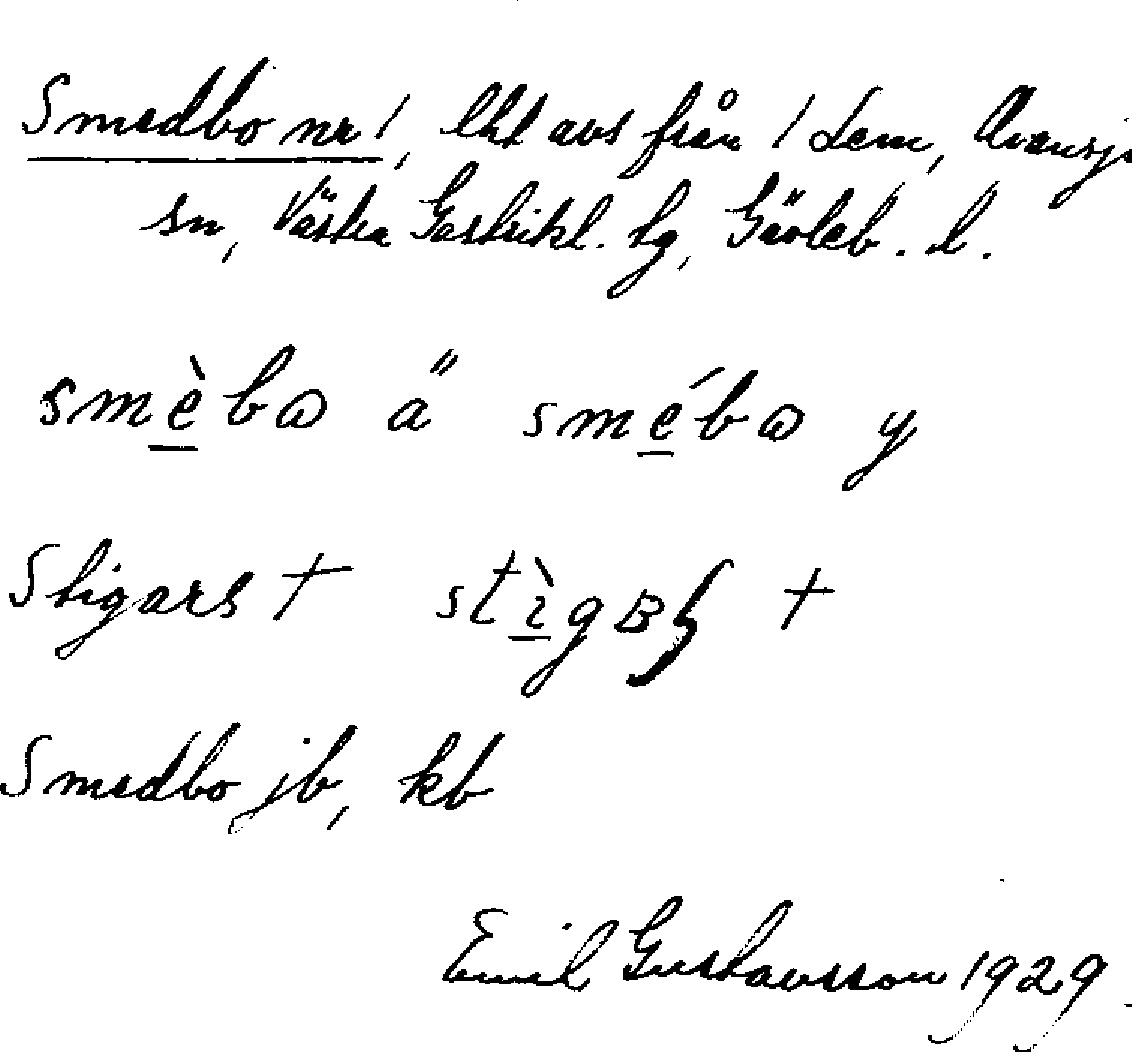 Smedbo nr 1, lht avs från 1 Lem, Ovansjö
sn, Västra Gästrikl. tg, Gävleb. l.
smèbɷ ä smébɷ y
Stigars † stìgʙʂ †
Smedbo jb, kb
Emil Gustavsson 1929